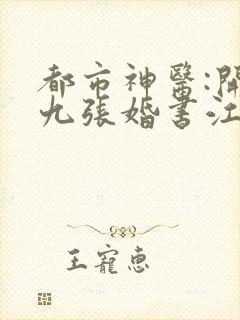 都市神醫:開
九張婚書江
王寵惠